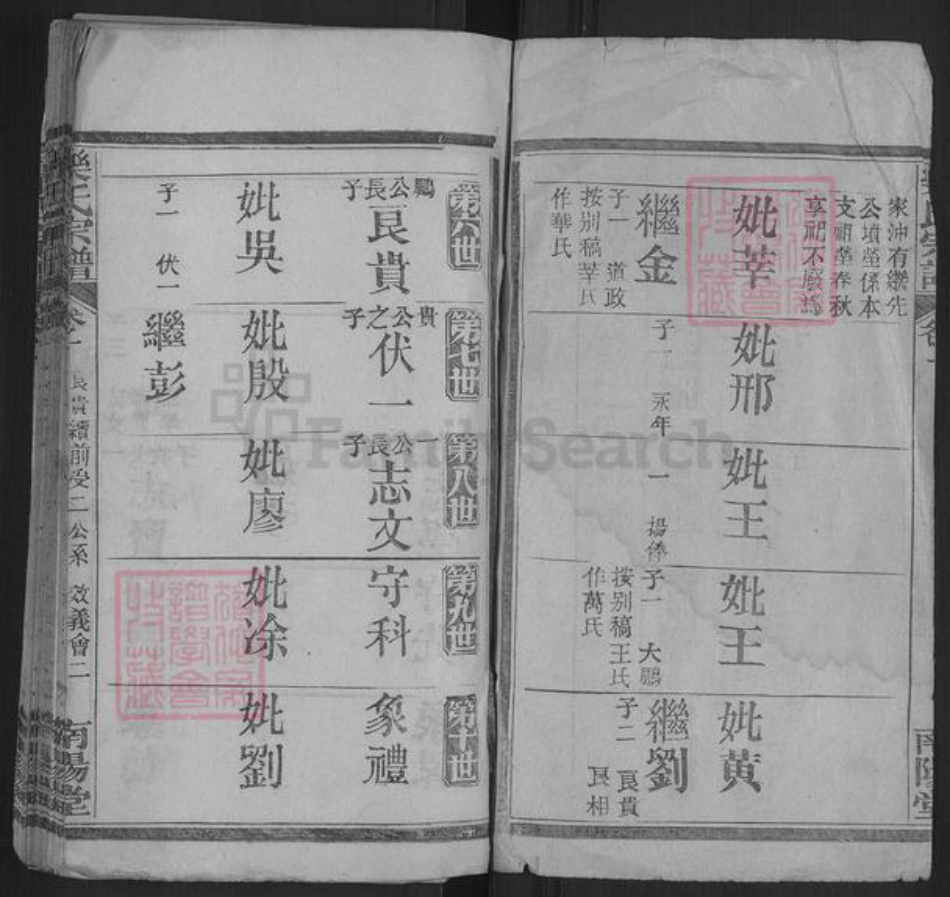 家沖有繼先
公墳塋係本
支祖塋春秋
享祀不廢爲
妣莘
繼金
子一 道政
按别稿莘氏
作華氏
妣邢
子一 永年
妣王
一 揚傑
妣王
子一 大鵬
按别稿王氏
作萬氏
妣黄
繼劉
子二 良貴
良相
南陽堂
第六世
鵬公長子
良貴
妣吳
子一 伏一
第七世
貴公之子
伏一
妣殷
繼彭
第八世
一公長子
志文
妣廖
第九世
守科
妣涂
第十世
象禮
妣劉
樂氏宗譜
卷一
良貴續前受二公系
效義會二
南陽堂
FamilySearch